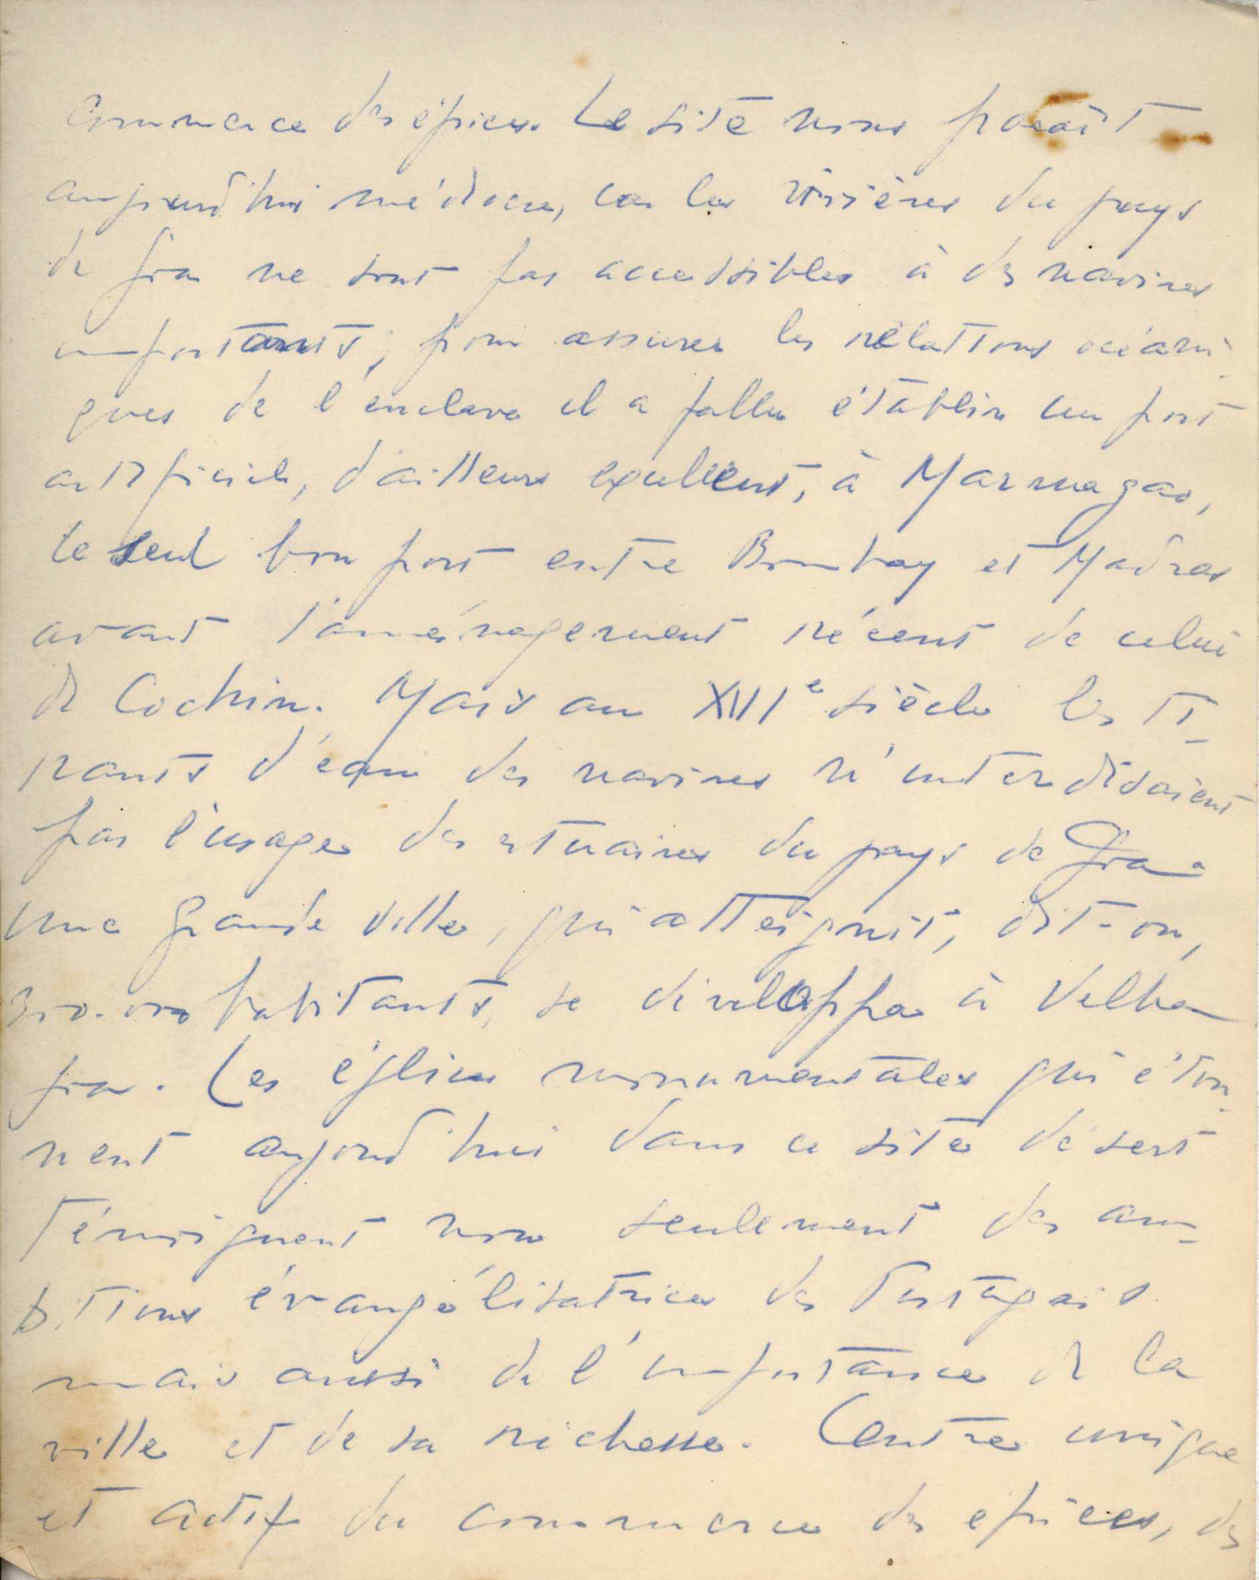 commerce des épices. Le site nous paraît
aujourd'hui médiocre, car les rivières du pays
de Goa ne sont pas accessibles à des navires
importants; pour assurer les relations océani-
ques de l'enclave il a fallu établir un port
artificiel, d'ailleurs excellent, à Marmagao,
le seul bon port entre Bombay et Madras
avant l'aménagement récent de celui
de Cochin. Mais au XVIIe siècle les ti-
rants d'eau des navires n'interdisaient
pas l'usage des estuaires du pays de Goa.
Une grande ville, qui atteignit, dit-on,
300.000 habitants, se développa à Velha
Goa. Les églises monumentales qui éton-
nent aujourd'hui dans ce site désert
témoignent non seulement des am-
bitions évangélisatrices des Portugais
mais aussi de l'importance de la
ville et de sa richesse. Centre unique
et actif du commerce des épices, des